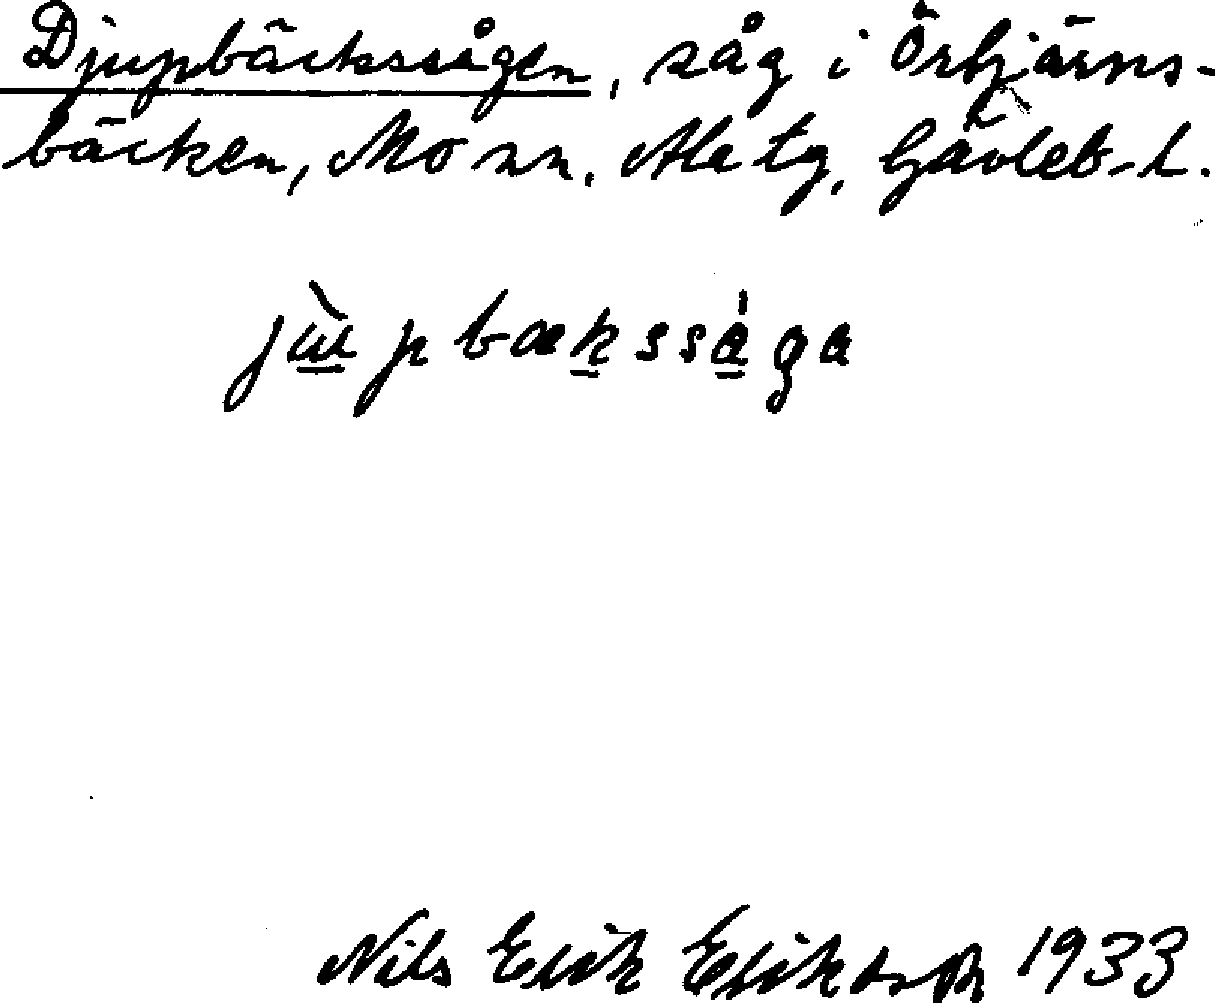 Djupbäckssågen, såg i Örtjärns-
bäcken, Mo sn. Ala tg, Gävleb-l.
jùpbækssåga
Nils Erik Eriksson 1933